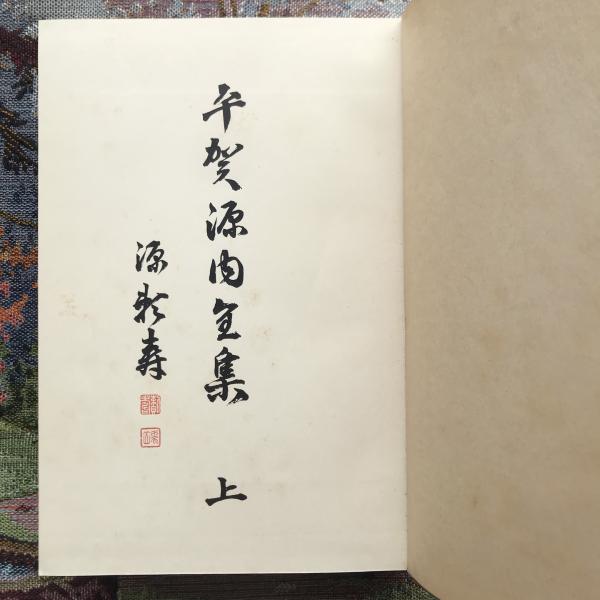 平賀源内全集 上
源頼寿